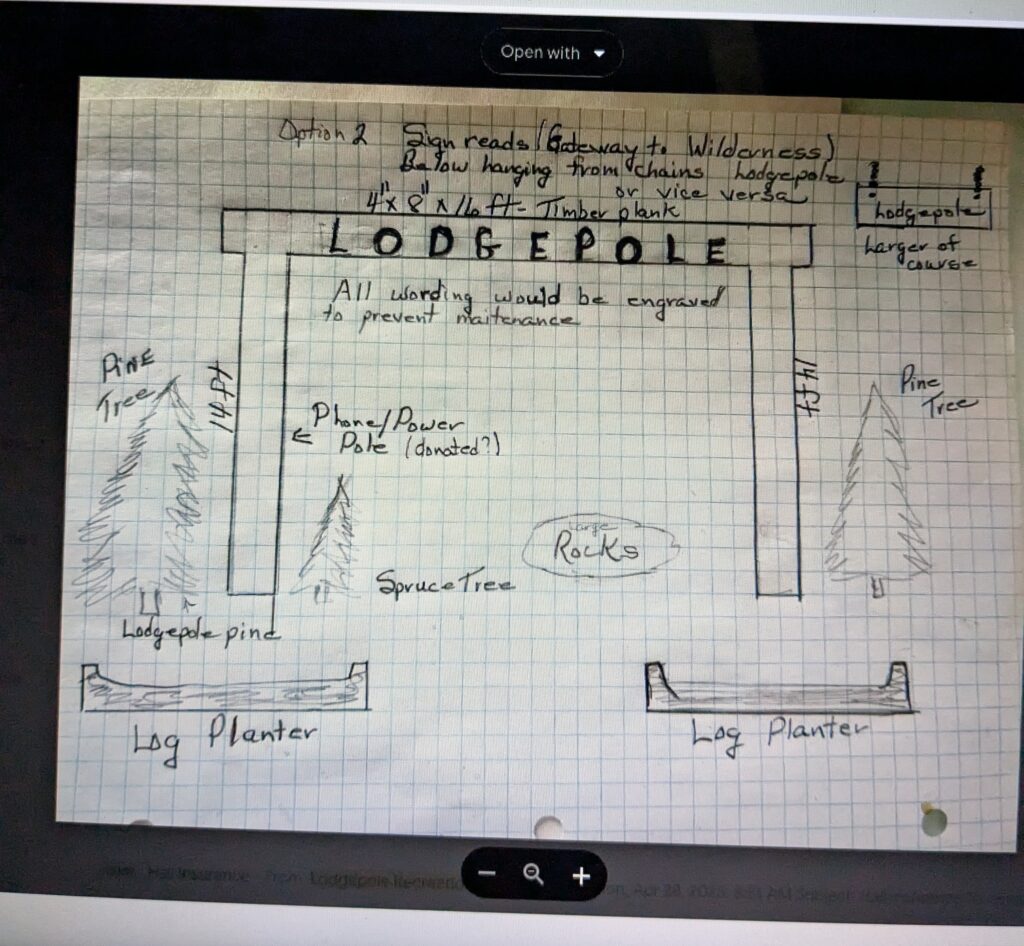 Open with
Option 2 Sign reads (Gateway to Wilderness)
Below hanging from chains Lodgepole
or vice versa
4"x 8" x 16 ft- Timber plank
LODGEPOLE
Lodgepole
Larger of
course
All wording would be engraved
to prevent maitenance
PINE
Tree
14 ft
Phone/Power
Pole (donated?)
14 ft
Pine
Tree
Large
Rocks
Spruce Tree
Lodgepole pine
Log Planter
Log Planter
Hall Insurance From Lodgepole Recreatio